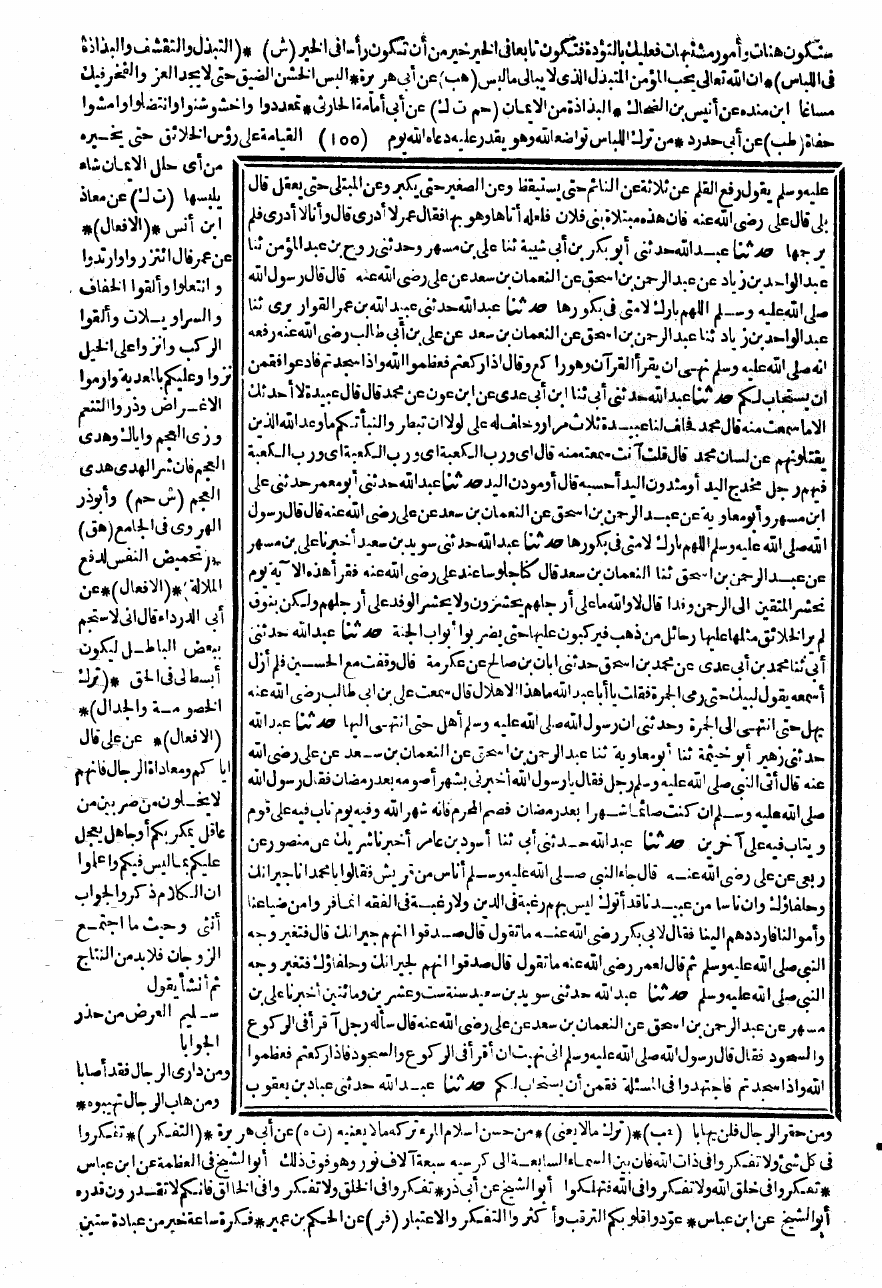 ستكون هنات وأمور مشتبهات فعليك بالتؤدة فتكون تابعا فى الخير خير من أن تكون رأسا فى الخير (ش) *(التبذل والتقشف والبذاذة
فى اللباس)* ان الله تعالى يحب المؤمن المتبذل الذى لا يبالى مالبس (هب) عن أبى هريرة* البس الخشن الضيق حتى لا يجد العز والفخر فيك
مساغا ابن منده عن أنيس بن الضحاك * البذاذة من الايمان (حم ت ك) عن أبى أمامة الحارثى* تمعددوا واخشوشنوا وانتضلوا وامشوا
حفاة (طب) عن أبى حدرد * من ترك اللباس تواضعا لله وهو يقدر عليه دعاه الله يوم (١٥٥) القيامة على رؤس الخلائق حتى يخيره
عليه وسلم يقول رفع القلم عن ثلاثة عن النائم حتى يستيقظ وعن الصغير حتى يكبر وعن المبتلى حتى يعقل قال
بلى قال على رضى الله عنه فان هذه مبتلاة بنى فلان فلعله أتاها وهو بها فقال عمر لا أدرى قال وأنا لا أدرى فلم
يرجها حدثنا عبد الله حدثنى أبو بكر بن أبى شيبة ثنا على بن مسهر وحدثنى روح بن عبد المؤمن ثنا
عبد الواحد بن زياد عن عبد الرحمن بن اسحق عن النعمان بن سعد عن على رضى الله عنه قال قال رسول الله
صلى الله عليه وسلم اللهم بارك لامتى فى بكورها حدثنا عبد الله حدثنى عبيد الله بن عمر القواريرى ثنا
عبد الواحد بن زياد ثنا عبد الرحمن بن اسحق عن النعمان بن سعد عن على بن أبى طالب رضى الله عنه رفعه
انه صلى الله عليه وسلم نهى ان يقرأ القرآن وهو راكع وقال اذا ركعتم فعظموا الله واذا سجدتم فادعوا فقمن
ان يستجاب لكم حدثنا عبد الله حدثنى أبى ثنا ابن أبى عدى عن ابن عون عن محمد قال قال عبيدة لا أحدثك
الا ما سمعت منه قال محمد فحلف لنا عبيدة ثلاث مرار وحلف له على لولا ان تبطروا لنبأتكم ما وعد الله الذين
يقتلونهم عن لسان محمد قال قلت آنت سمعته منه قال اى ورب الكعبة اى ورب الكعبة اى ورب الكعبة
فيهم رجل مخدج اليد أو مثدون اليد أحسبه قال أو مودن اليد حدثنا عبد الله حدثنى أبو معمر حدثنى على
ابن مسهر وأبو معاوية عن عبد الرحمن بن اسحق عن النعمان بن سعد عن على رضى الله عنه قال قال رسول
الله صلى الله عليه وسلم اللهم بارك لامتى فى بكورها حدثنا عبد الله حدثنى سويد بن سعيد أخبرنا على بن مسهر
عن عبد الرحمن بن اسحق ثنا النعمان بن سعد قال كنا جلوسا عند على رضى الله عنه فقرأ هذه الآية يوم
نحشر المتقين الى الرحمن وفدا قال لا والله ما على أرجلهم يحشرون ولا يحشر الوفد على أرجلهم ولكن بنوق
لم ير الخلائق مثلها عليها رحائل من ذهب فيركبون عليها حتى يضربوا أبواب الجنة حدثنا عبد الله حدثنى
أبى ثنا محمد بن أبى عدى عن محمد بن اسحق حدثنى ابان بن صالح عن عكرمة قال وقفت مع الحسين فلم أزل
أسمعه يقول لبيك حتى رمى الجمرة فقلت يا أبا عبد الله ما هذا الاهلال قال سمعت على بن ابى طالب رضى الله عنه
يهل حتى انتهى الى الجمرة وحدثنى ان رسول الله صلى الله عليه وسلم أهل حتى انتهى اليها حدثنا عبد الله
حدثنى زهير أبو خيثمة ثنا أبو معاوية ثنا عبد الرحمن بن اسحق عن النعمان بن سعد عن على رضى الله
عنه قال أتى النبى صلى الله عليه وسلم رجل فقال يا رسول الله أخبرنى بشهر أصومه بعد رمضان فقال رسول الله
صلى الله عليه وسلم ان كنت صائما شهرا بعد رمضان فصم المحرم فانه شهر الله وفيه يوم تاب فيه على قوم
ويتاب فيه على آخرين حدثنا عبد الله حدثنى أبى ثنا أسود بن عامر أخبرنا شريك عن منصور عن
ربعى عن على رضى الله عنه قال جاء النبى صلى الله عليه وسلم أناس من قريش فقالوا يا محمد انا جيرانك
وحلفاؤك وان ناسا من عبيدنا قد أتوك ليس بهم رغبة فى الدين ولا رغبة فى الفقه انما فروا من ضياعنا
وأموالنا فارددهم الينا فقال لابى بكر رضى الله عنه ما تقول قال صدقوا انهم جيرانك قال فتغير وجه
النبى صلى الله عليه وسلم ثم قال لعمر رضى الله عنه ما تقول قال صدقوا انهم لجيرانك وحلفاؤك فتغير وجه
النبى صلى الله عليه وسلم حدثنا عبد الله حدثنى سويد بن سعيد سنة ست وعشرين ومائتين أخبرنا على بن
مسهر عن عبد الرحمن بن اسحق عن النعمان بن سعد عن على رضى الله عنه قال سأله رجل آقرأ فى الركوع
والسجود فقال قال رسول الله صلى الله عليه وسلم انى نهيت ان أقرأ فى الركوع والسجود فاذا ركعتم فعظموا
الله واذا سجدتم فاجتهدوا فى المسئلة فقمن أن يستجاب لكم حدثنا عبد الله حدثنى عباد بن يعقوب
من أى حلل الايمان شاء
يلبسها (ت ك) عن معاذ
ابن أنس *(الافعال)*
عن عمر قال ائتزروا وارتدوا
وانتعلوا وألقوا الخفاف
والسراويلات وألقوا
الركب وانزوا على الخيل
نزوا وعليكم بالمعدية وارموا
الاغراض وذروا التنعم
وزى العجم واياك وهدى
العجم فان شر الهدى هدى
العجم (ش حم) وأبوذر
الهروى فى الجامع (هق)
*(تحميض النفس لدفع
الملالة)*(الافعال)* عن
أبى الدرداء قال انى لاستجم
ببعض الباطل ليكون
أبسط لى فى الحق *(ترك
الخصومة والجدال)*
(الافعال)* عن على قال
اياكم ومعاداة الرجال فانهم
لا يخلون من ضربين من
عاقل يمكر بكم أو جاهل يعجل
عليكم بما ليس فيكم واعلموا
ان الكلام ذكر والجواب
أنثى وحيث ما اجتمع
الزوجان فلا بد من النتاج
ثم أنشأ يقول
سليم العرض من حذر
الجوابا
ومن دارى الرجال فقد أصابا
ومن هاب الرجال تهيبوه *
ومن حقر الرجال فلن يهابا (هب)*(ترك ما لا يعنى)* من حسن اسلام المرء تركه ما لا يعنيه (ت ه) عن أبى هريرة *(التفكر)* تفكروا
فى كل شئ ولا تفكروا فى ذات الله فان بين السماء السابعة الى كرسيه سبعة آلاف نور وهو فوق ذلك أبو الشيخ فى العظمة عن ابن عباس
* تفكروا فى خلق الله ولا تفكروا فى الله فتهلكوا أبو الشيخ عن أبى ذر * تفكروا فى الخلق ولا تفكروا فى الخالق فانكم لا تقدرون قدره
أبو الشيخ عن ابن عباس* عودوا قلوبكم الترقب وأكثروا التفكر والاعتبار (فر) عن الحكم بن عمير * فكرة ساعة خير من عبادة ستين